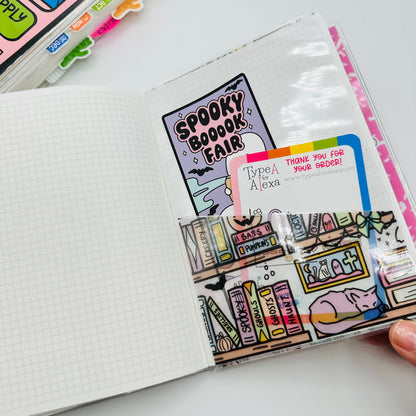 PPLY
SPOOKY
BOOOOK
FAIR
THANK YOU FOR
YOUR ORDER!
Type A
for
Alexa
www.typeaforalexa.com
BATS
PUMPKINS
SPOOKY
GHOULS
GHOSTS
HAUNT